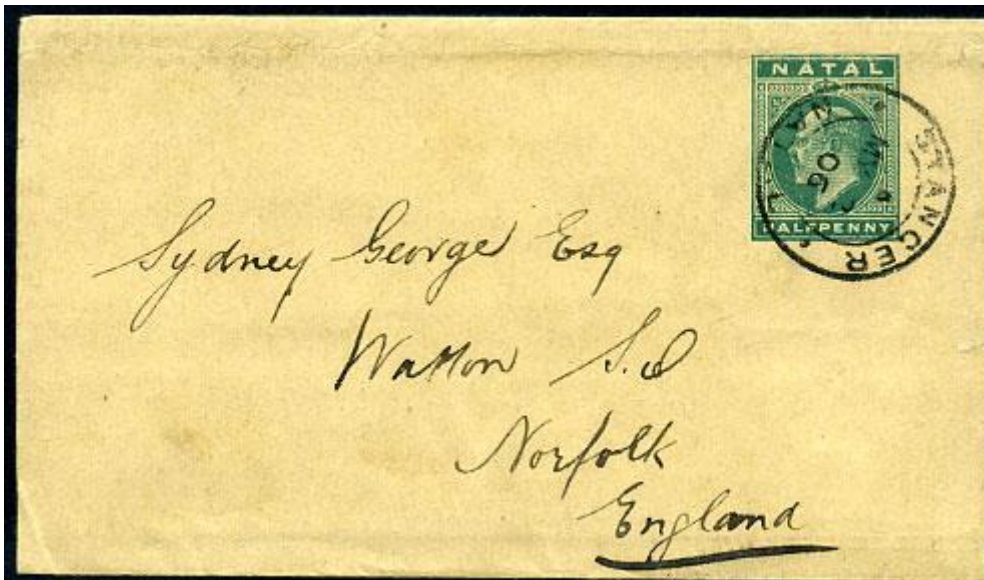 NATAL
HALFPENNY
STANGER NATAL
06
Sydney George Esq
Watton S.O
Norfolk
England